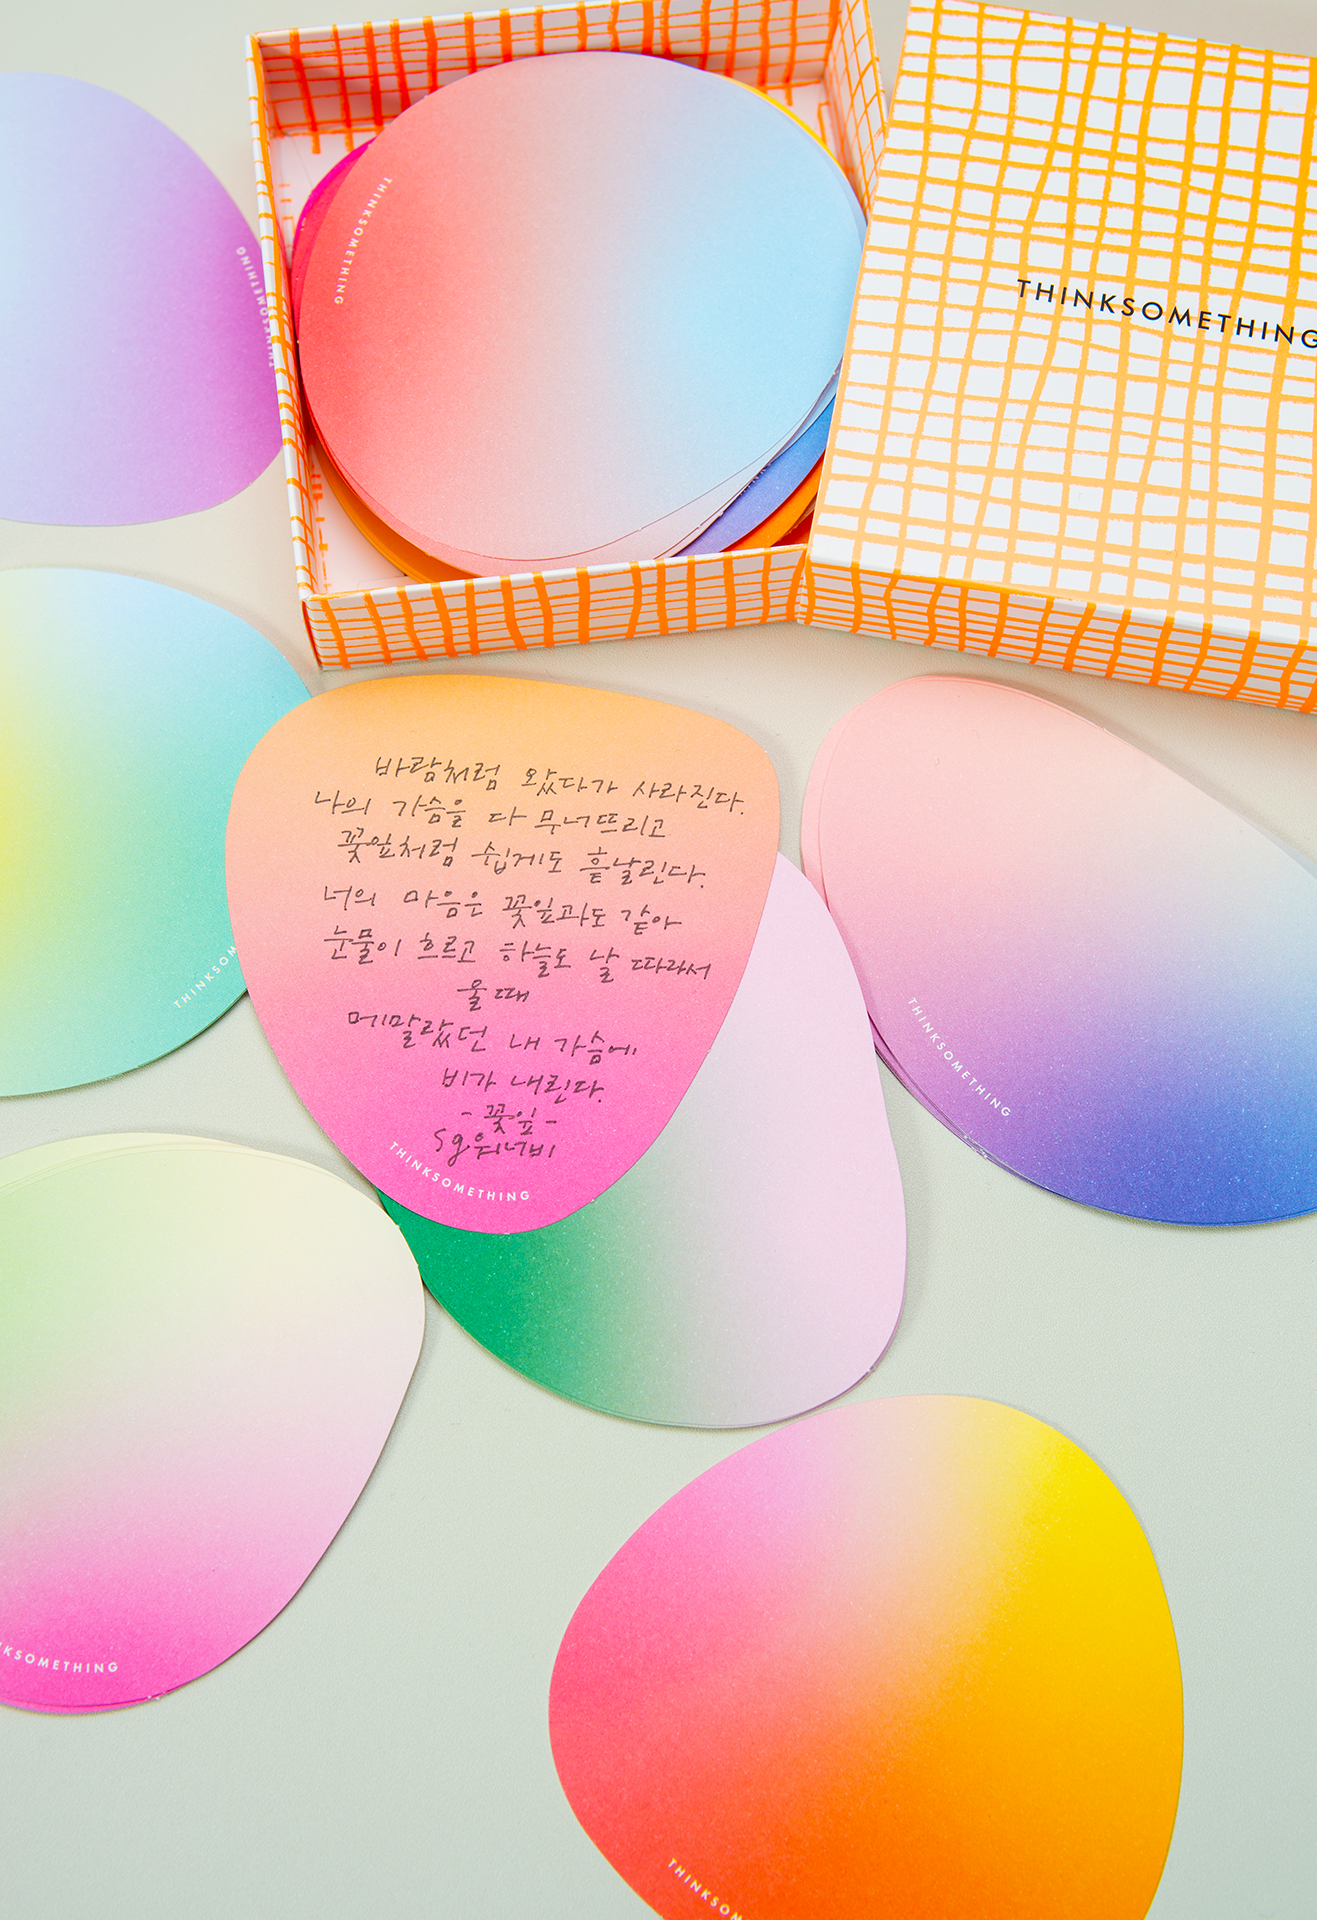 THINKSOMETHING
THINKSOMETHING
THINKSOMETHING
바람처럼 왔다가 사라진다.
나의 가슴을 다 무너뜨리고
꽃잎처럼 쉽게도 흩날린다.
너의 마음은 꽃잎과도 같아
눈물이 흐르고 하늘도 날 따라서
울 때
메말랐던 내 가슴에
비가 내린다.
- 꽃잎 -
sg워너비
THINKSOMETHING
THINKSOM
THINKSOMETHING
NKSOMETHING
THINKSOM